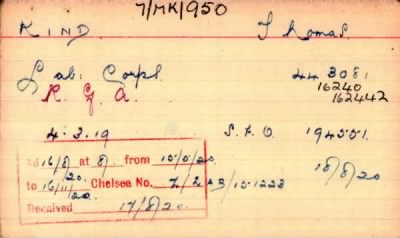 7/MK/950
KIND. Thomas.
Lab: Corps. 443081
R. G. A. 16240
162442
4.3.19 S.F.O. 194551.
Ad 16/8/20 at 8/- from 10/5/20.
to 16/11/20. Chelsea No. 7/2 AB/151228
18/8/20
Received 17/8/20.